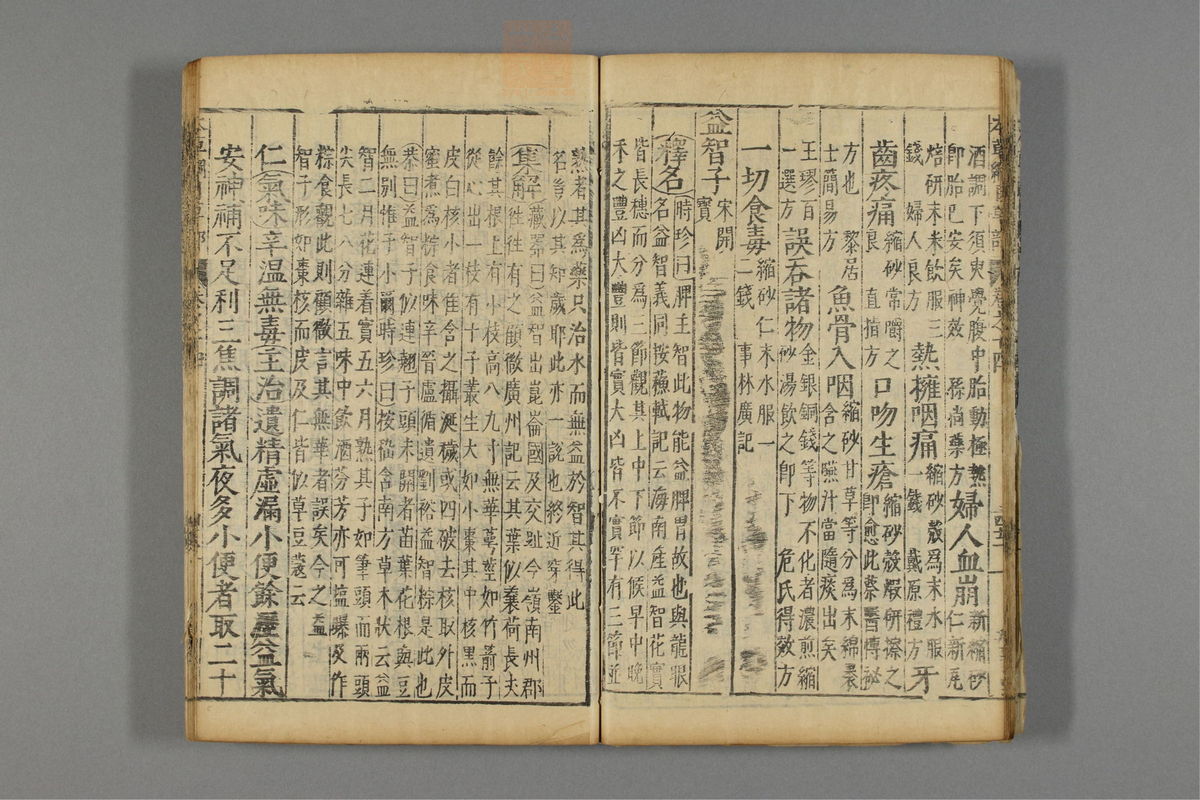 酒調下須臾覺腹中胎動極熱
即胎已安矣神效 孫尚藥方 婦人血崩 新縮砂仁新瓦
焙研末米飲服三錢 婦人良方 熱擁咽痛 縮砂殼爲末水服一錢 戴原禮方 牙
齒疼痛 縮砂常嚼之良 直指方 口吻生瘡 縮砂殼煅研擦之即愈此蔡醫傳秘
方也 黎居士簡易方 魚骨入咽 縮砂甘草等分爲末綿裹含之嚥汁當隨痰出矣
王璆百一選方 誤吞諸物 金銀銅錢等物不化者濃煎縮砂湯飲之即下 危氏得效方
一切食毒 縮砂仁末水服一二錢 事林廣記
益智子 宋開寶
釋名 時珍曰脾主智此物能益脾胃故也與龍眼
名益智義同按蘇軾記云海南產益智花實
皆長穗而分爲三節觀其上中下節以候早中晚
禾之豐凶大豐則皆實大凶皆不實罕有三節並
熟者其爲藥只治水而無益於智其得此
名豈以其知歲耶此亦一說也終近穿鑿
集解 藏器曰益智出崑崙國及交趾今嶺南州郡
徃徃有之顧微廣州記云其葉似蘘荷長丈
餘其根上有小枝高八九寸無華萼莖如竹箭子
從心出一枝有十子叢生大如小棗其中核黑而
皮白核小者佳含之攝涎穢或四破去核取外皮
蜜煮爲粽食味辛晉盧循遺劉裕益智粽是此也
恭曰益智子似連翹子頭未開者苗葉花根與豆蔻
無別惟子小爾時珍曰按嵇含南方草木狀云益
智二月花連着實五六月熟其子如筆頭而兩頭
尖長七八分雜五味中飲酒芬芳亦可鹽曝及作
粽食觀此則顧微言其無華者誤矣今之益
智子形如棗核而皮及仁皆似草豆蔻云
仁 氣味辛溫無毒 主治遺精虛漏小便餘瀝益氣
安神補不足利三焦調諸氣夜多小便者取二十